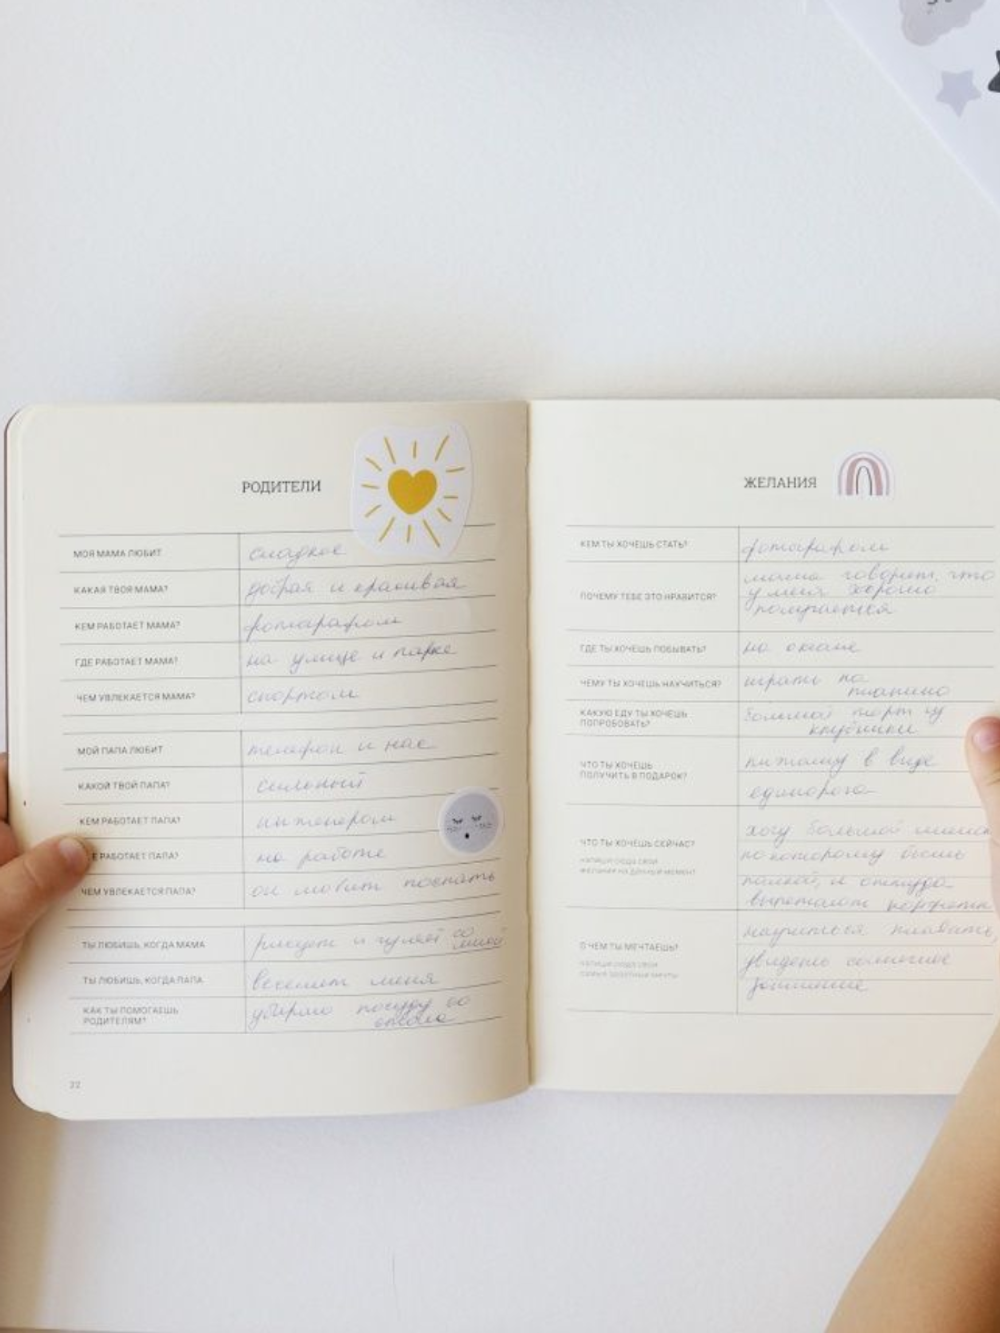 РОДИТЕЛИ
МОЯ МАМА ЛЮБИТ
сладкое
КАКАЯ ТВОЯ МАМА?
добрая и красивая
КЕМ РАБОТАЕТ МАМА?
фотографом
ГДЕ РАБОТАЕТ МАМА?
на улице и парке
ЧЕМ УВЛЕКАЕТСЯ МАМА?
спортом
МОЙ ПАПА ЛЮБИТ
телефон и нас
КАКОЙ ТВОЙ ПАПА?
сильный
КЕМ РАБОТАЕТ ПАПА?
РАБОТАЕТ ПАПА?
на работе
ЧЕМ УВЛЕКАЕТСЯ ПАПА?
он любит поспать
ТЫ ЛЮБИШЬ, КОГДА МАМА
рисует и гуляет со
мной
ТЫ ЛЮБИШЬ, КОГДА ПАПА
веселит меня
КАК ТЫ ПОМОГАЕШЬ
РОДИТЕЛЯМ?
убираю посуду со
стола
22
ЖЕЛАНИЯ
КЕМ ТЫ ХОЧЕШЬ СТАТЬ?
фотографом
ПОЧЕМУ ТЕБЕ ЭТО НРАВИТСЯ?
мама говорит, что
у меня хорошо
получается
ГДЕ ТЫ ХОЧЕШЬ ПОБЫВАТЬ?
на океане
ЧЕМУ ТЫ ХОЧЕШЬ НАУЧИТЬСЯ?
играть на
пианино
КАКУЮ ЕДУ ТЫ ХОЧЕШЬ
ПОПРОБОВАТЬ?
большой торт из
клубники
ЧТО ТЫ ХОЧЕШЬ
ПОЛУЧИТЬ В ПОДАРОК?
пиньяту в виде
единорога
ЧТО ТЫ ХОЧЕШЬ СЕЙЧАС?
НАПИШИ СЮДА СВОИ
ЖЕЛАНИЯ НА ДАННЫЙ МОМЕНТ
хочу большой
по которому бьешь
палкой, и оттуда
вылетают конфеты
О ЧЕМ ТЫ МЕЧТАЕШЬ?
НАПИШИ СЮДА СВОИ
САМЫЕ ЗАВЕТНЫЕ МЕЧТЫ
научиться плавать,
увидеть солнечное
затмение